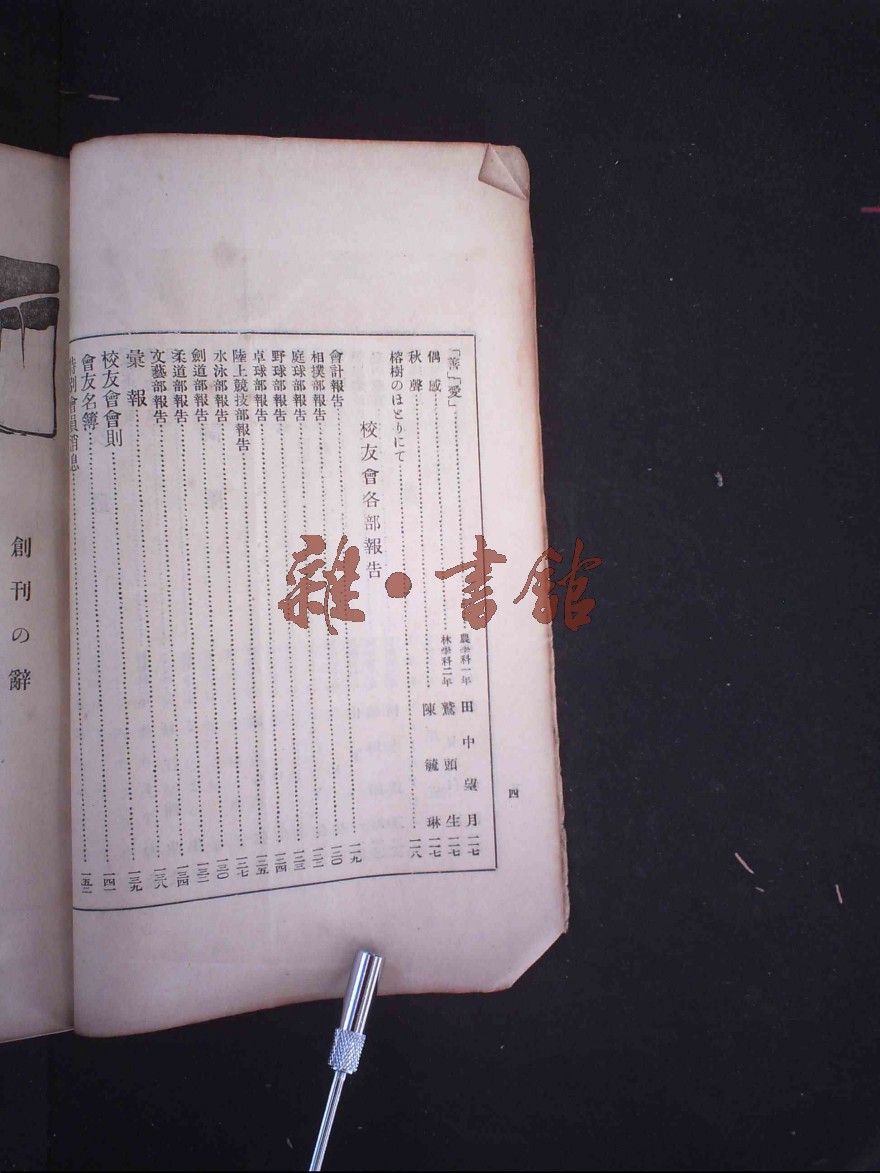 四
「善」「愛」………農學科一年 田中望月 一一七
偶感………林學科二年 鷲頭生 一一七
秋聲………陳毓琳 一一七
榕樹のほとりにて………一一八
校友會各部報告
會計報告………一一九
相撲部報告………一二〇
庭球部報告………一二二
野球部報告………一二三
卓球部報告………一二四
陸上競技部報告………一二五
水泳部報告………一二七
劍道部報告………一三〇
柔道部報告………一三二
文藝部報告………一三四
彙報………一三八
校友會會則………一三九
會友名簿………一四一
特別會員消息………一五二
創刊の辭
雜·書館